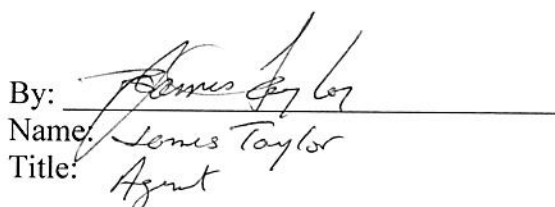 By: James Taylor
Name: James Taylor
Title: Agent